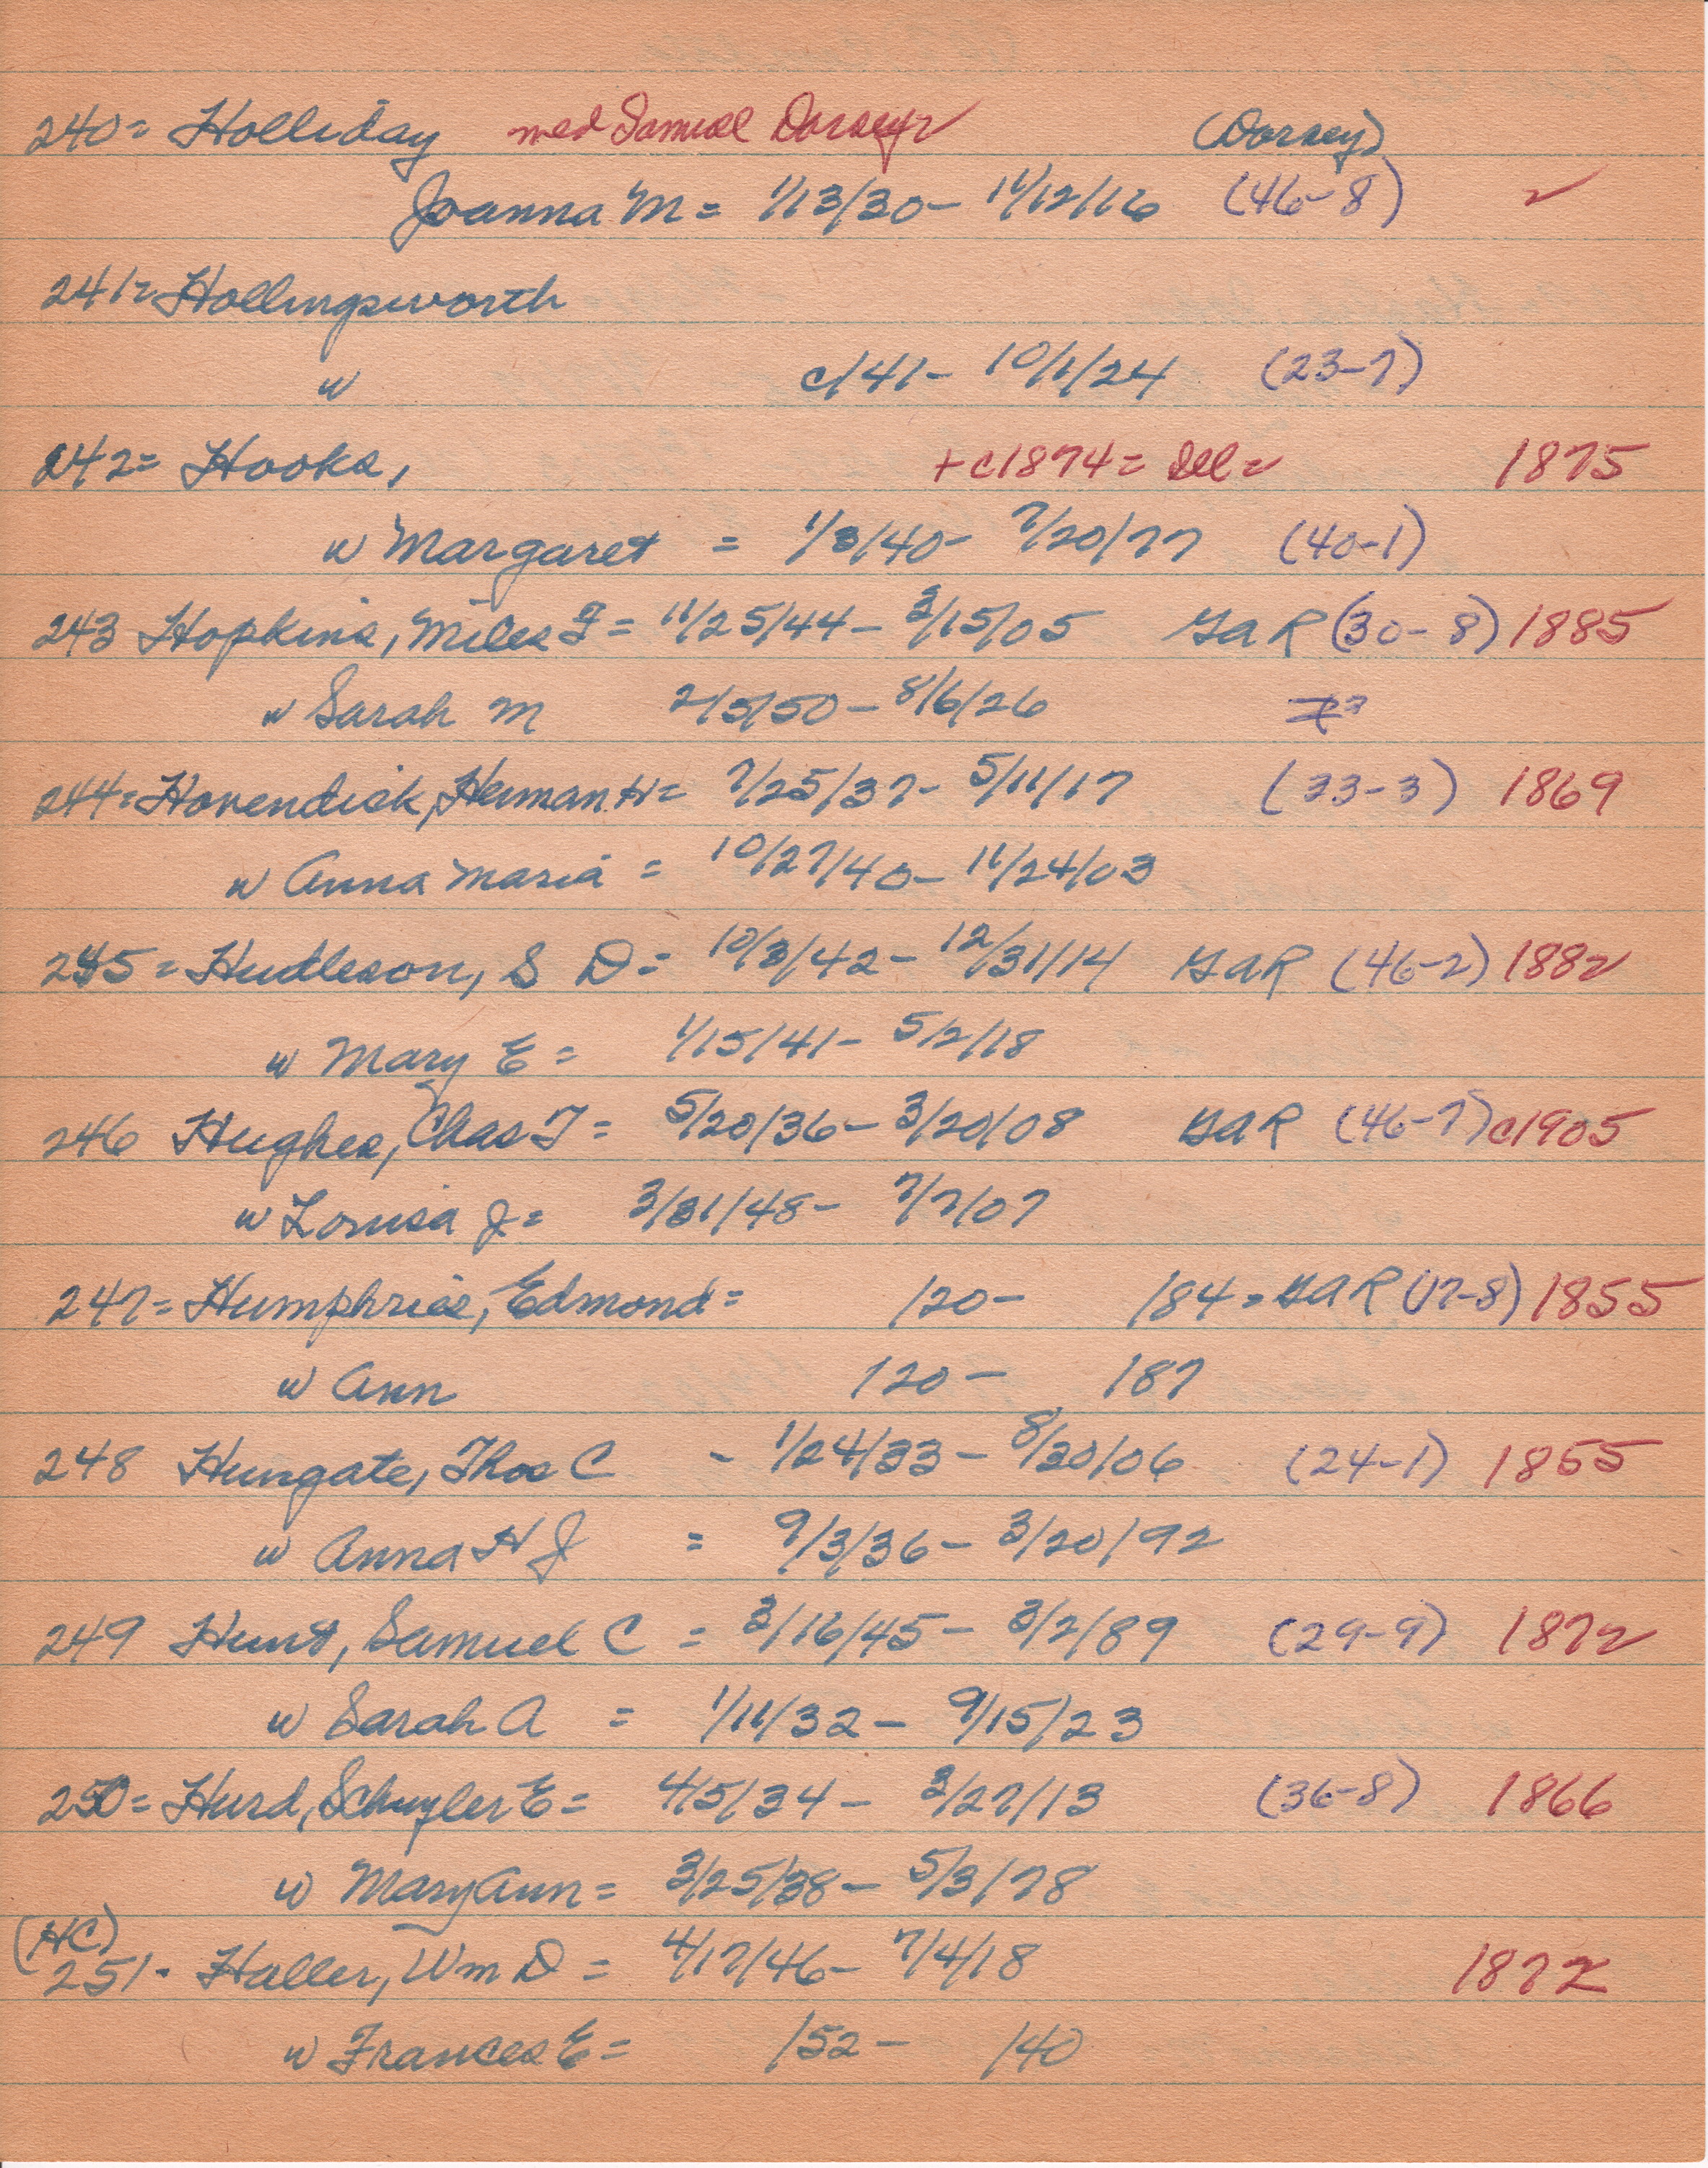 240= Holliday med Samuel Dorsey (Dorsey)
Joanna M = 1/13/30 - 11/12/16 (46-8) ✓
241= Hollingsworth
w c/41 - 10/1/24 (23-7)
242= Hooks, +c1874 = Ill = 1875
w Margaret = 1/3/40 - 7/20/77 (40-1)
243 Hopkins, Miles F = 11/25/44 - 3/15/05 GAR (30-8) 1885
w Sarah M 2/5/50 - 8/6/26
244= Hovendick, Herman H = 7/25/37 - 5/11/17 (33-3) 1869
w Anna Maria = 10/27/40 - 11/24/03
245= Hudleson, S D = 10/3/42 - 12/31/14 GAR (46-2) 1882
w Mary E = 1/15/41 - 5/2/18
246 Hughes, Chas T = 5/20/36 - 3/20/08 GAR (46-7) c1905
w Louisa J = 3/31/48 - 7/7/07
247= Humphries, Edmond = /20 - /84 = GAR (17-8) 1855
w Ann /20 - /87
248 Hungate, Thos C - 1/24/33 - 8/30/06 (24-1) 1855
w Anna H J = 9/3/36 - 3/20/92
249 Hunt, Samuel C = 3/16/45 - 3/2/89 (29-9) 1872
w Sarah A = 1/11/32 - 9/15/23
250= Hurd, Schuyler E = 4/5/34 - 3/27/13 (36-8) 1866
w Mary Ann = 3/25/38 - 5/3/78
(HC)
251- Haller, Wm D = 4/17/46 - 7/4/18 1872
w Frances E = /52 - /40